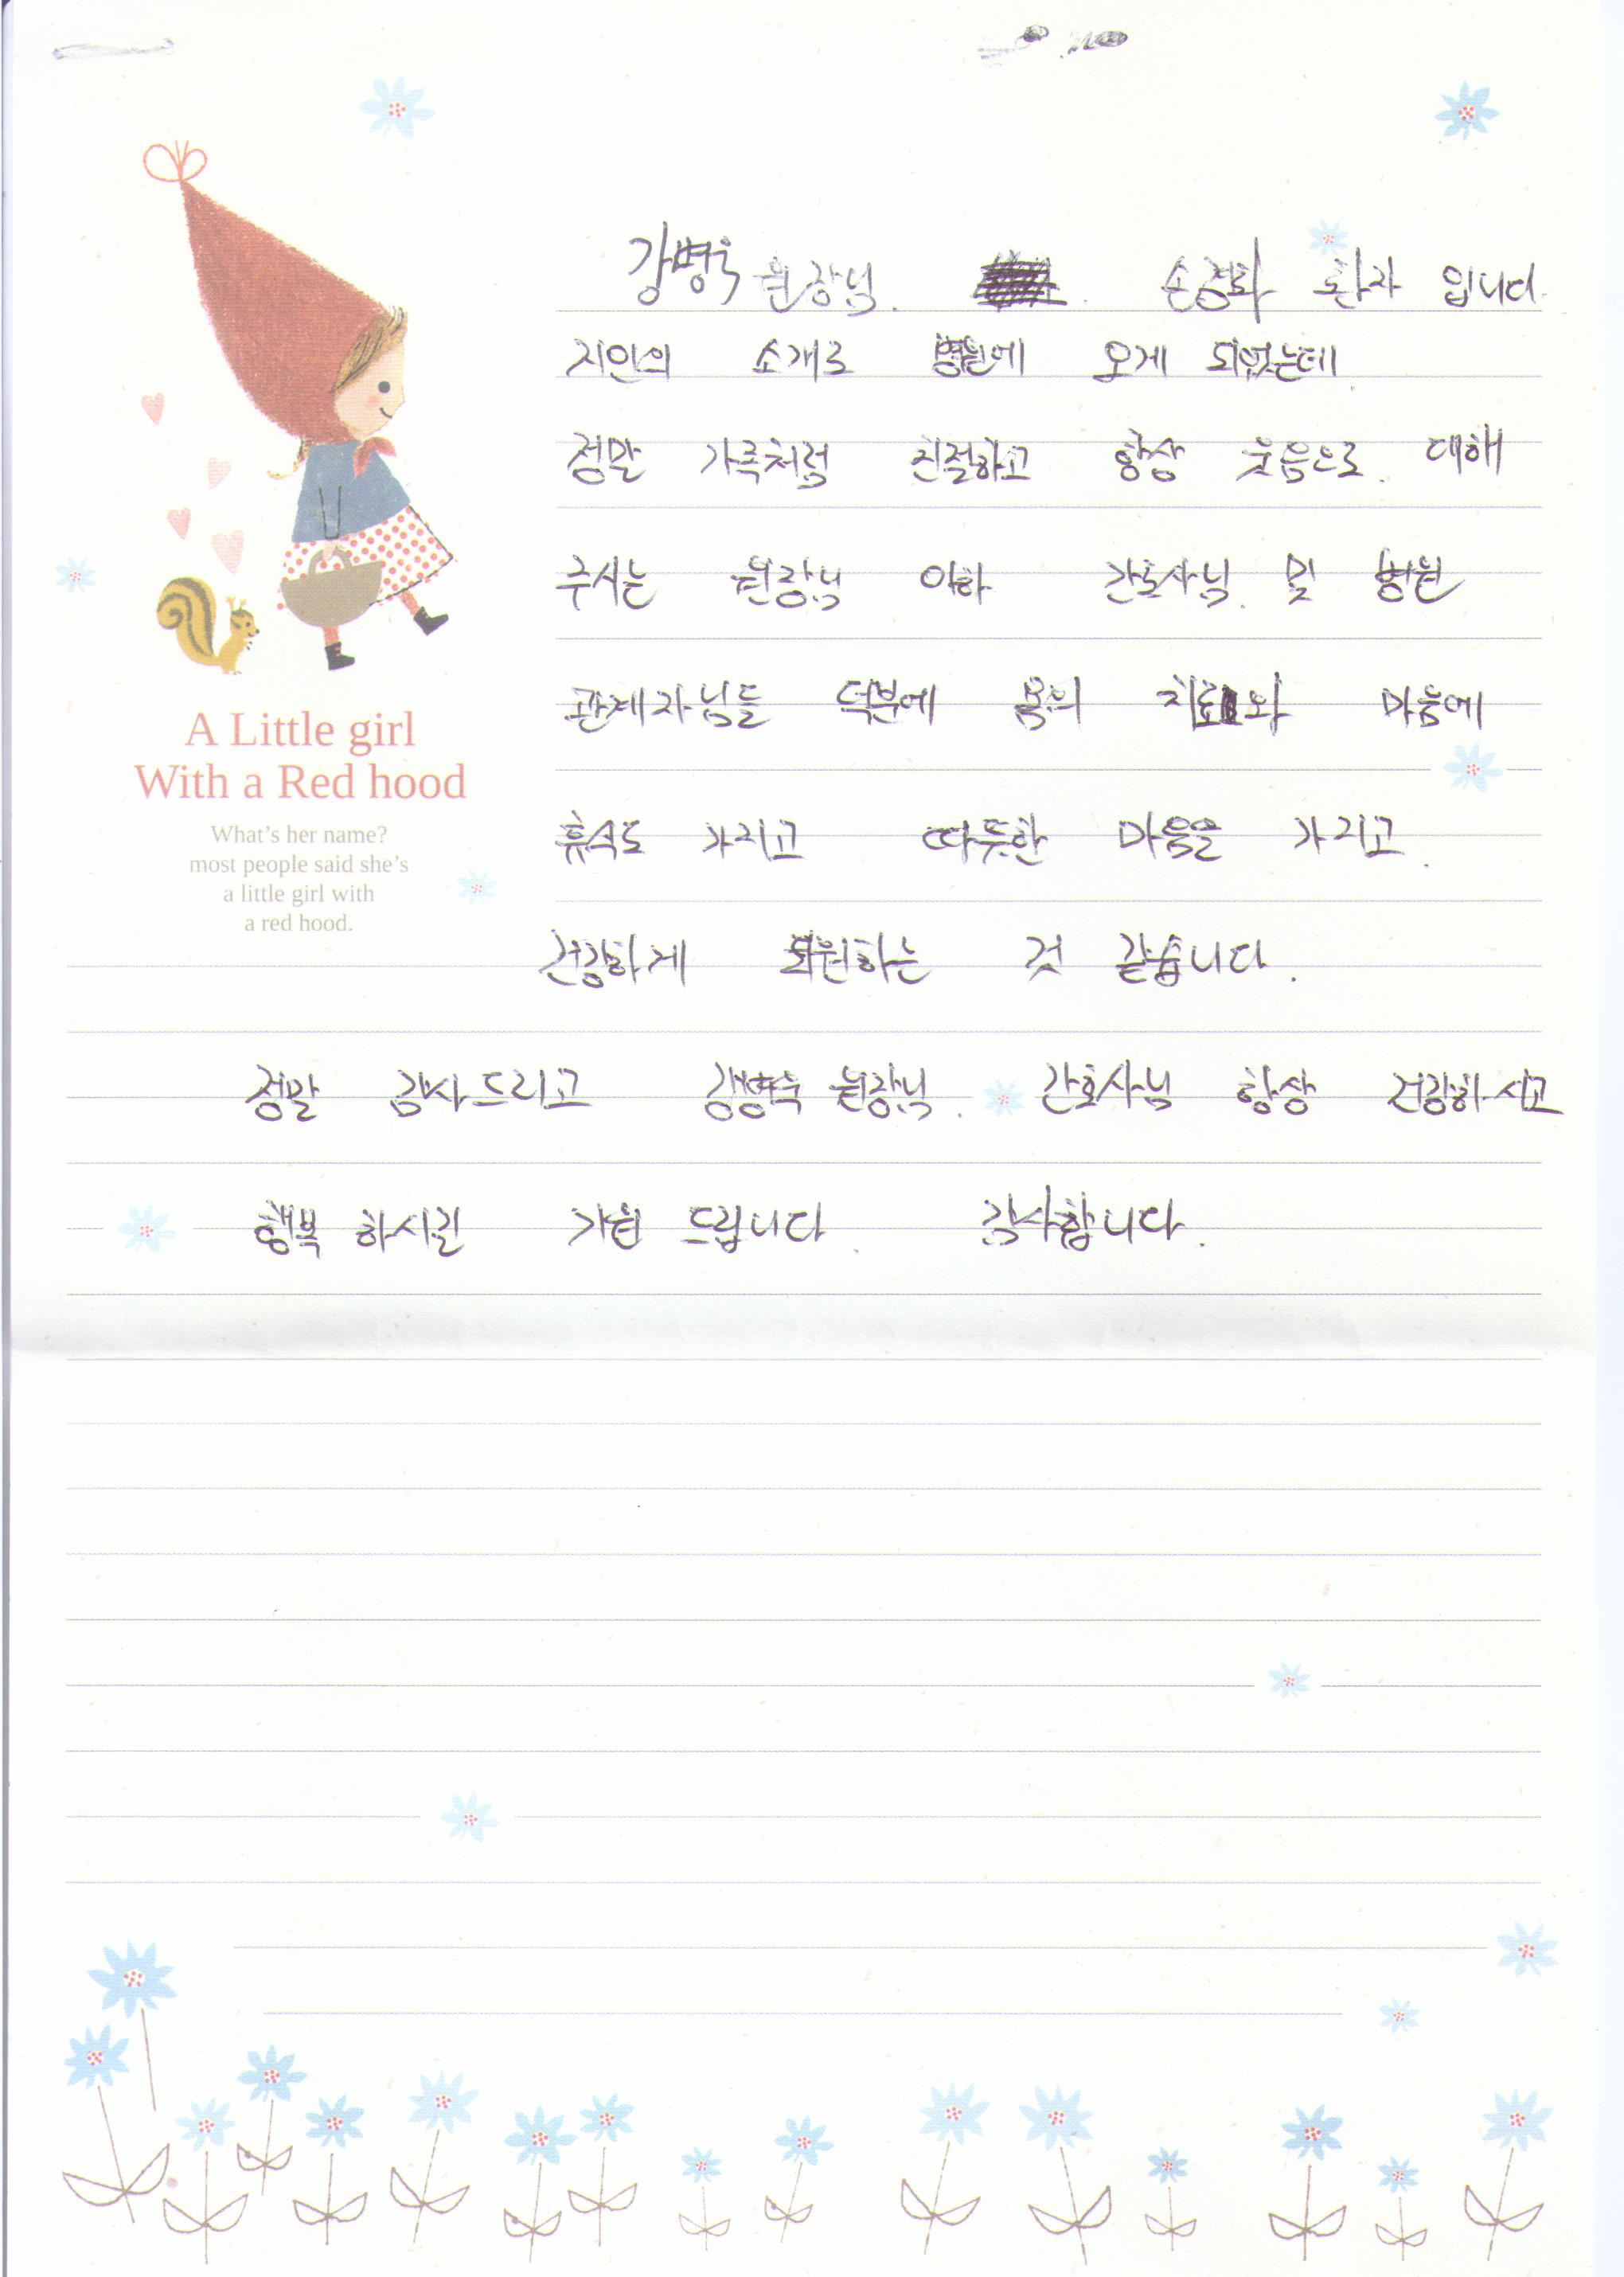 강병욱 원장님. 손경화 환자 입니다.
지인의 소개로 병원에 오게 되었는데
정말 가족처럼 친절하고 항상 웃음으로 대해
주시는 원장님 이하 간호사님. 및 병원
관계자님들 덕분에 몸의 치료와 마음에
휴식도 가지고 따뜻한 마음을 가지고.
건강하게 퇴원하는 것 같습니다.
정말 감사드리고 강병욱 원장님. 간호사님 항상 건강하시고
행복 하시길 기원 드립니다. 감사합니다.
A Little girl
With a Red hood
What's her name?
most people said she's
a little girl with
a red hood.